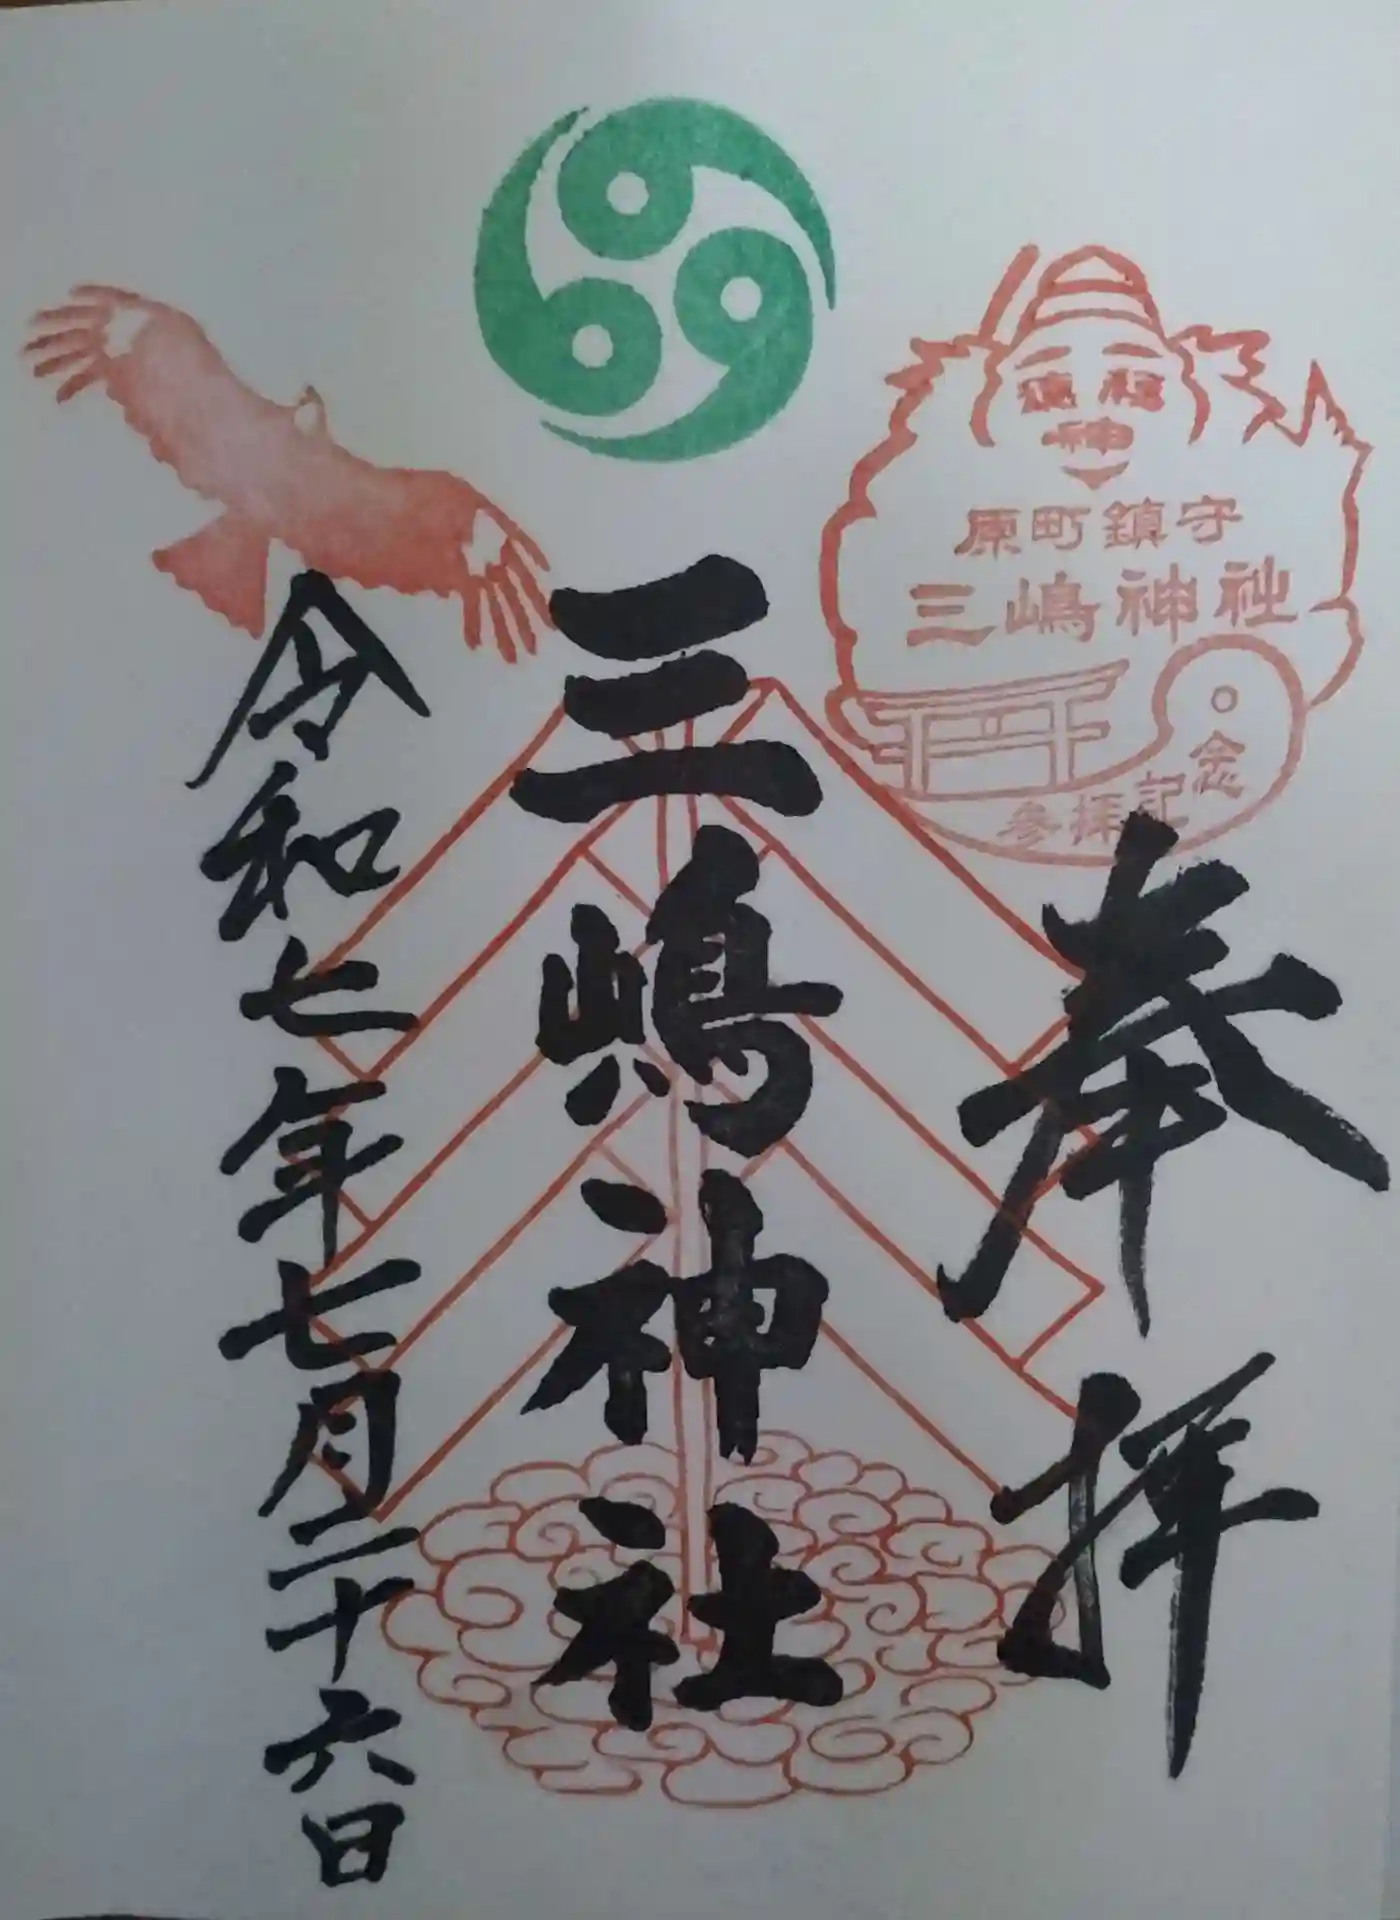 福徳
神
原町鎮守
三嶋神社
参拝記念
奉拝
三嶋神社
令和七年七月二十六日